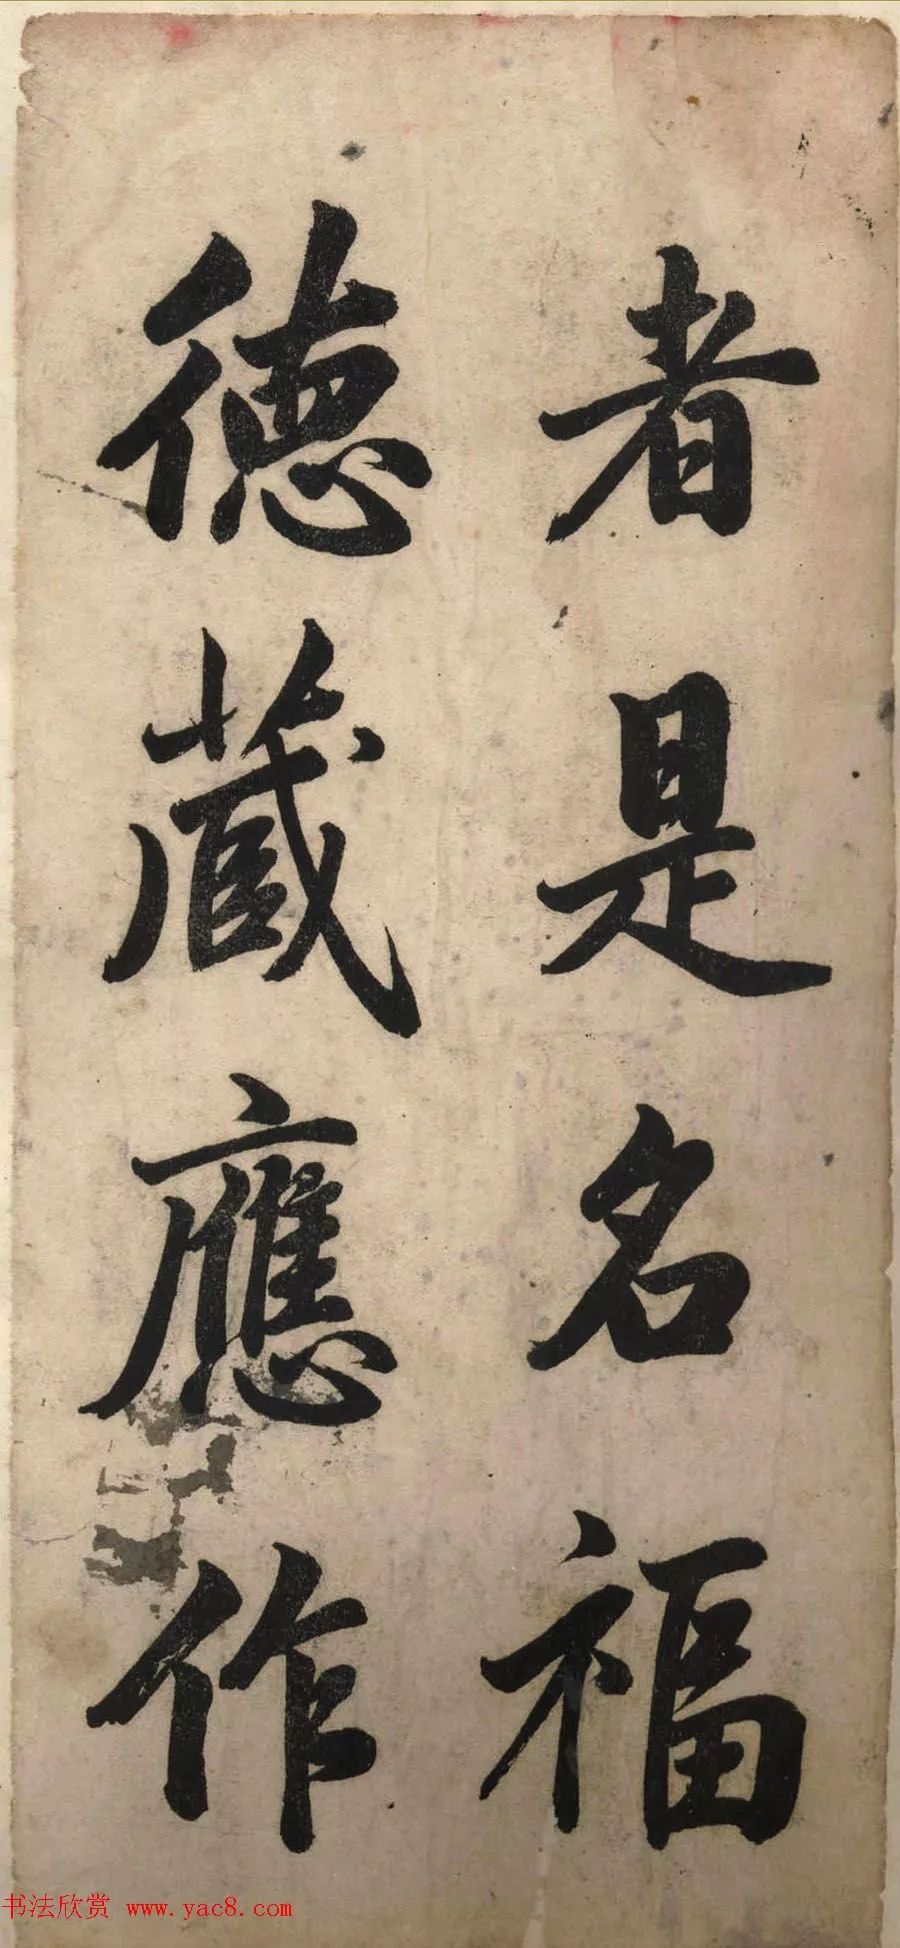 者是名福
德藏應作
书法欣赏 www.yac8.com